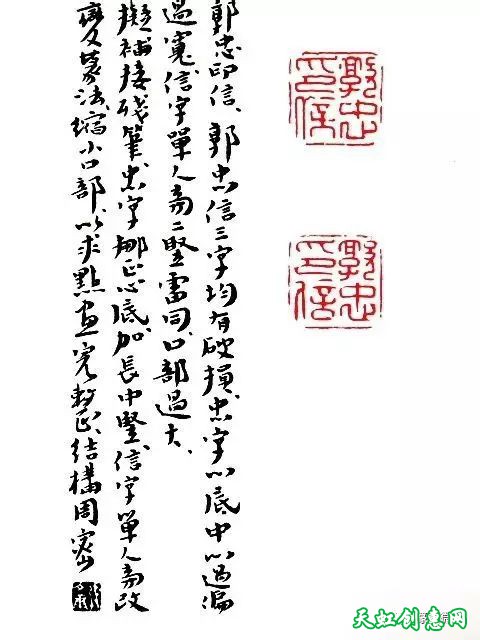 郭忠印信
郭忠印信
郭忠印信、郭忠信三字均有破損、忠字心底中心過偏
過寬、信字單人旁二竪雷同、口部過大、
擬補接殘筆、忠字挪正心底、加長中竪、信字單人旁改
變篆法、縮小口部、以求點畫完整、結構周密
天虹创意网